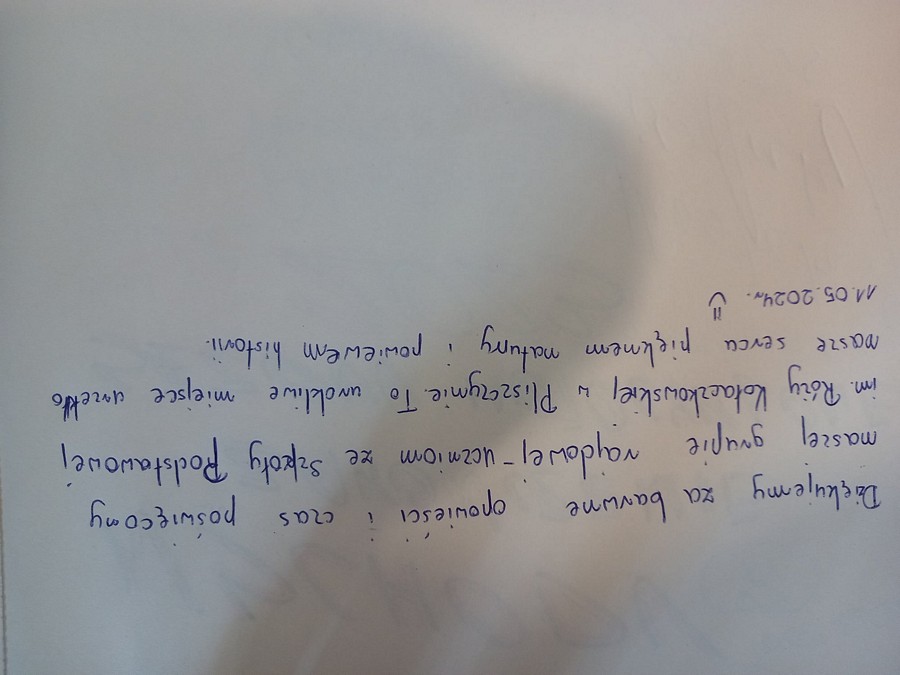 Dziękujemy za barwne opowieści i czas poświęcony
naszej grupie rajdowej - uczniom ze Szkoły Podstawowej
im. Róży Kołaczkowskiej w Pliszczynie. To urokliwe miejsce urzekło
nasze serca pięknem natury i powiewem historii.
11.05.2024r. :)